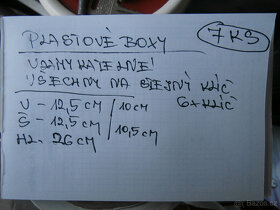 PLASTOVÉ BOXY
7 KS
UZAMYKATELNÉ!
VŠECHNY NA STEJNÝ KLÍČ
6x KLÍČ
V - 12,5 CM / 10 CM
Š - 12,5 CM / 10,5 CM
HL. 26 CM